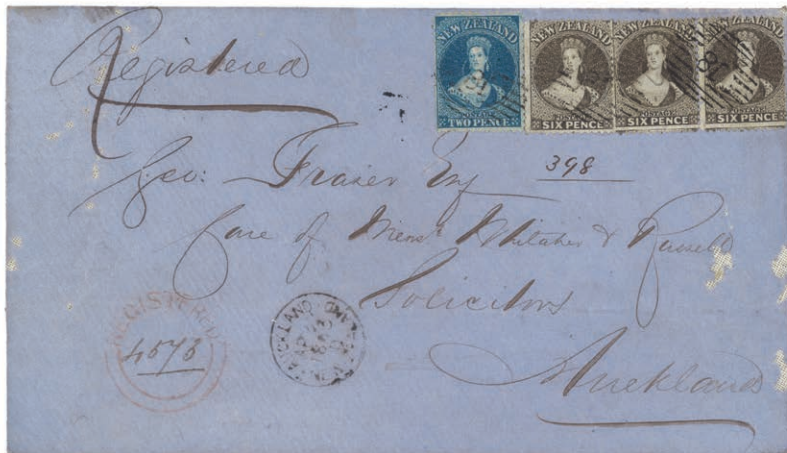 Registered
NEW ZEALAND
POSTAGE
TWO PENCE
NEW ZEALAND
POSTAGE
SIX PENCE
NEW ZEALAND
POSTAGE
SIX PENCE
NEW ZEALAND
POSTAGE
SIX PENCE
398
Geo: Fraser Esq
Care of Messrs Whitaker & Russell
Solicitors
Auckland
REGISTERED
4573
AUCKLAND